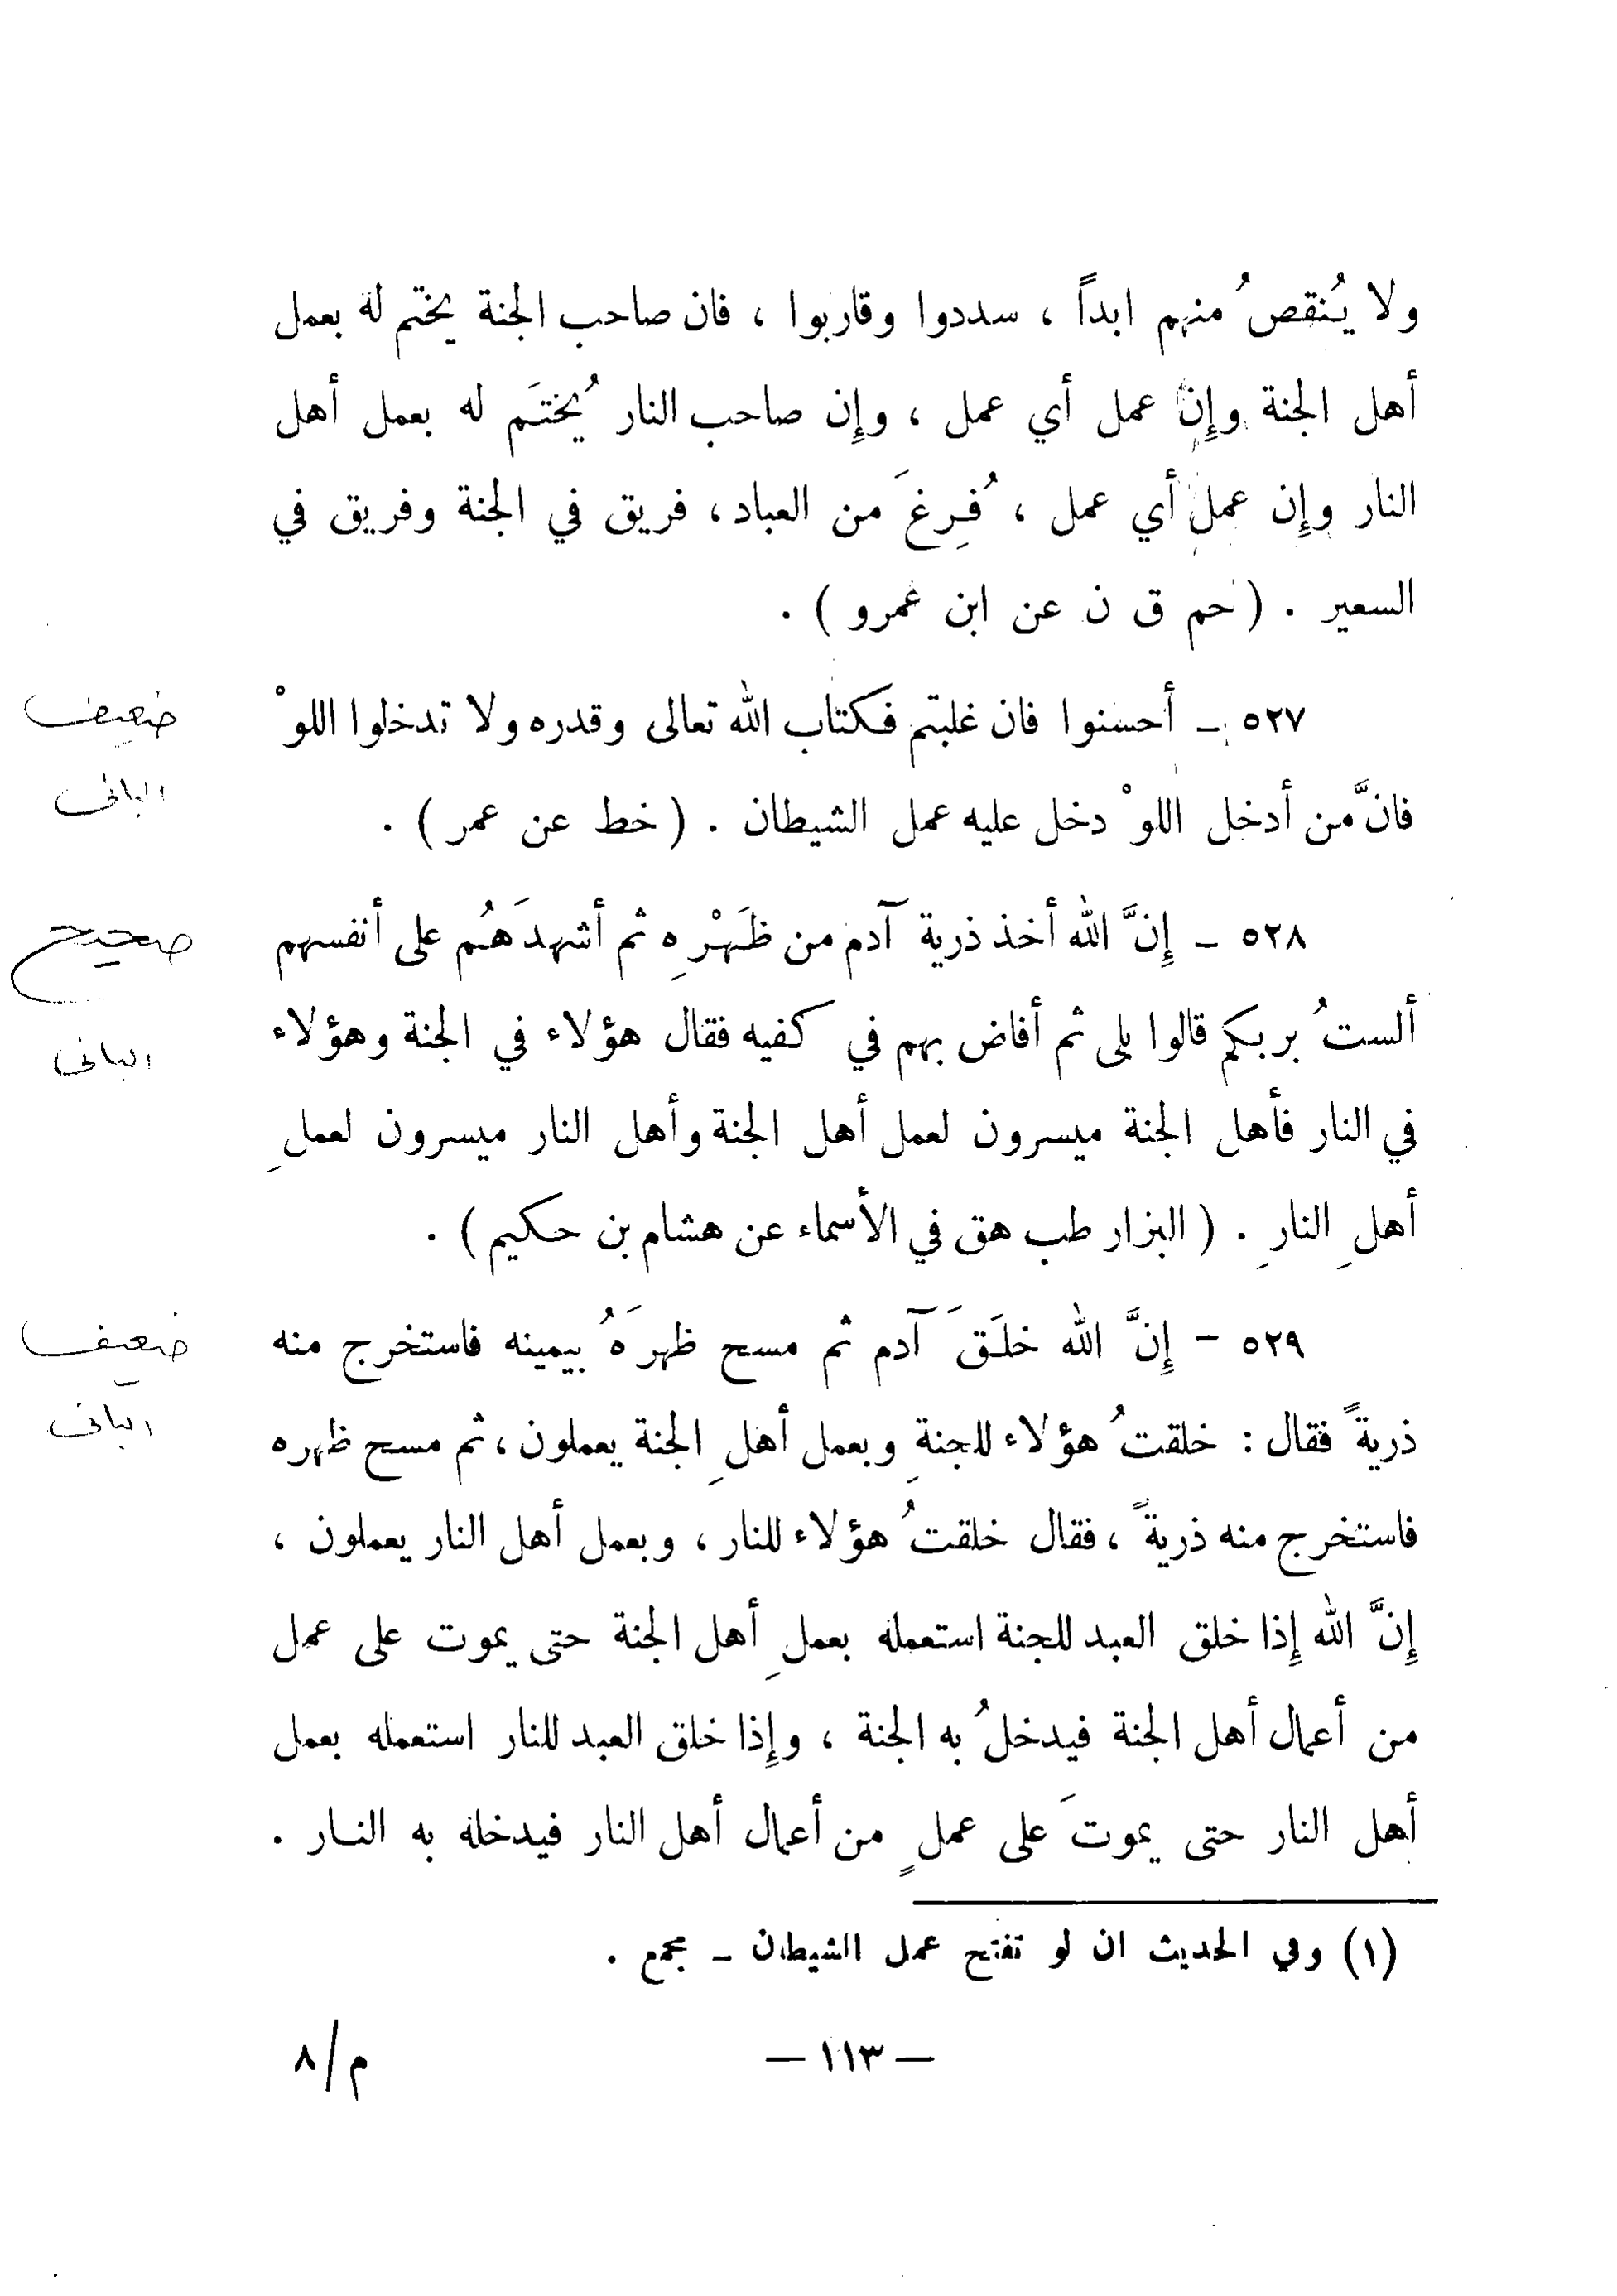 ولا يُنقصُ منهم ابداً ، سددوا وقاربوا ، فان صاحب الجنة يختم له بعمل
أهل الجنة وإن عمل أي عمل ، وإن صاحب النار يُختَم له بعمل أهل
النار وإن عمل أي عمل ، فُرِغَ من العباد ، فريق في الجنة وفريق في
السعير . ( حم ق ن عن ابن عمرو ) .
٥٢٧ ـ أحسنوا فان غلبتم فكتاب الله تعالى وقدره ولا تدخلوا اللوْ
ضعيف
فانَّ من أدخل اللوْ دخل عليه عمل الشيطان . ( خط عن عمر ) .
البانى
٥٢٨ ـ إِنَّ الله أخذ ذرية آدم من ظَهْرِه ثم أشهدَهُم على أنفسهم
صحيح
ألستُ بربكم قالوا بلى ثم أفاض بهم في كفيه فقال هؤلاء في الجنة وهؤلاء
البانى
في النار فأهل الجنة ميسرون لعمل أهل الجنة وأهل النار ميسرون لعملِ
أهلِ النارِ . ( البزار طب هق في الأسماء عن هشام بن حكيم ) .
٥٢٩ ـ إِنَّ الله خلَقَ آدم ثم مسح ظهرَهُ بيمينه فاستخرج منه
ضعيف
ذريةً فقال : خلقتُ هؤلاء للجنةِ وبعمل أهلِ الجنة يعملون ، ثم مسح ظهره
البانى
فاستخرج منه ذريةً ، فقال خلقتُ هؤلاء للنار ، وبعمل أهل النار يعملون ،
إِنَّ الله إِذا خلق العبد للجنة استعمله بعملِ أهل الجنة حتى يموت على عمل
من أعمال أهل الجنة فيدخلُ به الجنة ، وإِذا خلق العبد للنار استعمله بعمل
أهل النار حتى يموتَ على عملٍ من أعمال أهل النار فيدخله به النـار .
(١) وفي الحديث ان لو تفتح عمل الشيطان ـ مجمع .
— ١١٣ —
م/٨